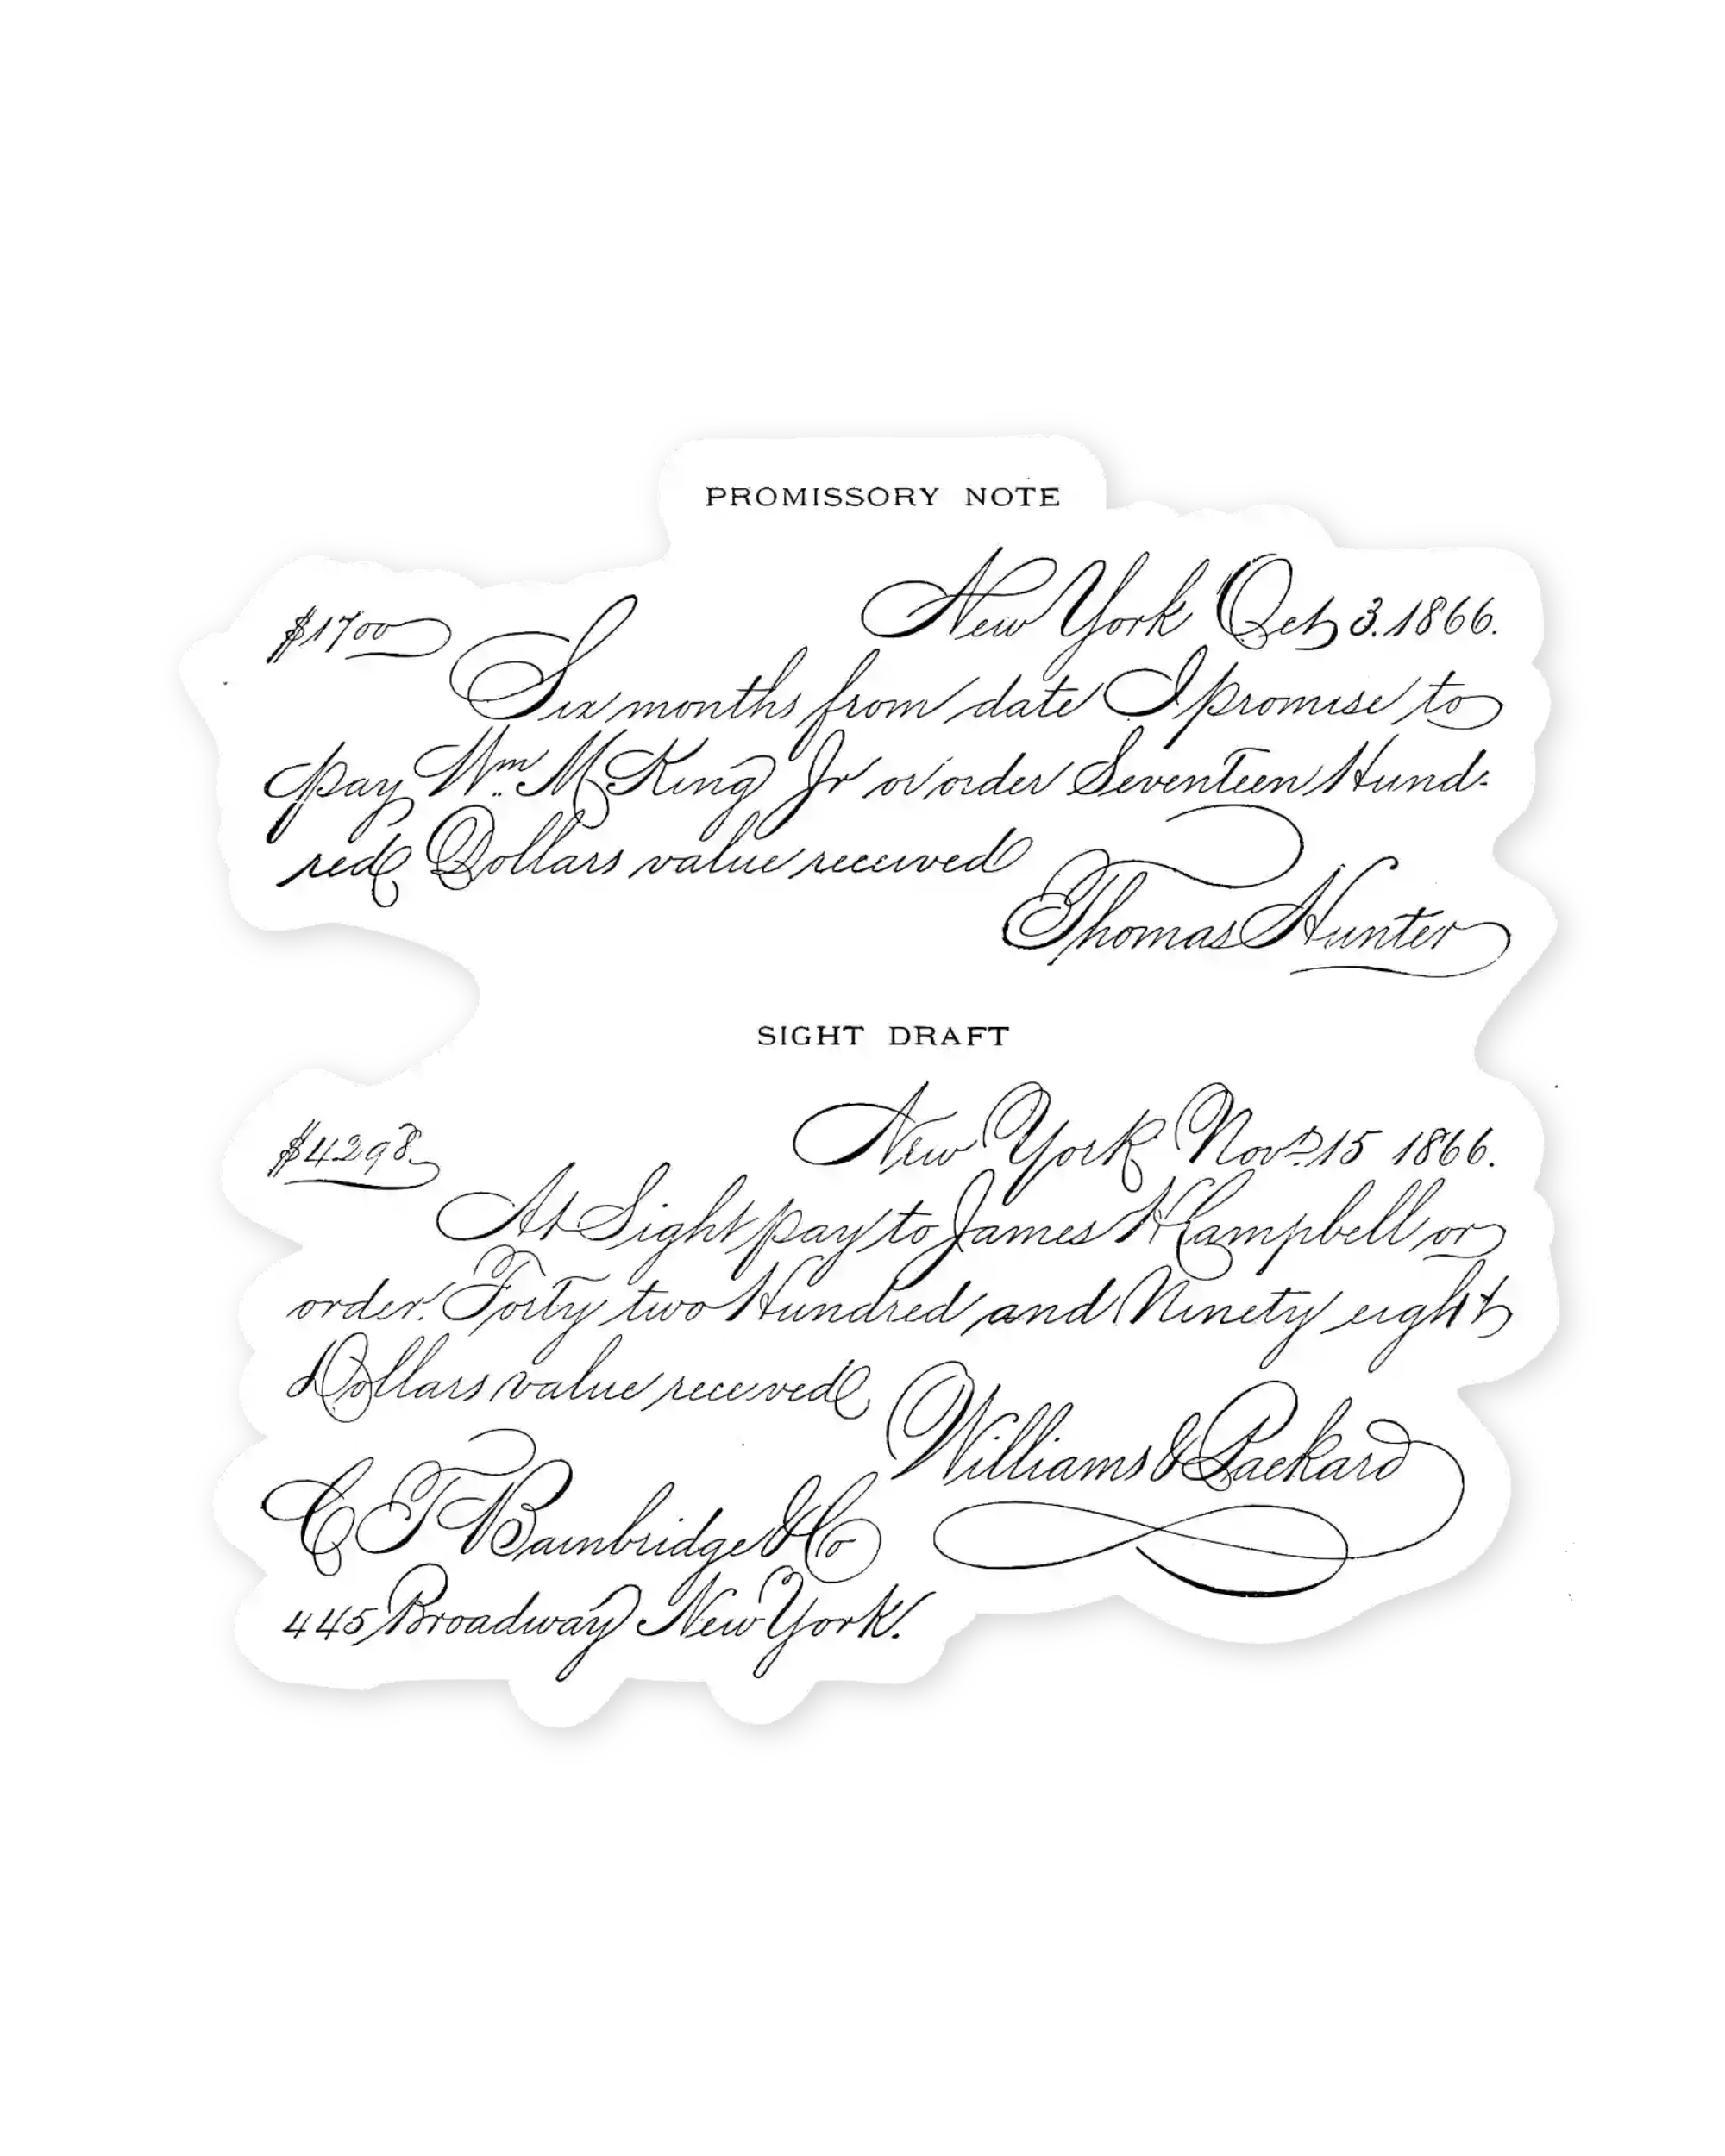 PROMISSORY NOTE
New York Oct 3. 1866.
$1700
Six months from date I promise to
pay Wm. M King Jr or order Seventeen Hund-
red Dollars value received
Thomas Hunter
SIGHT DRAFT
New York Nov. 15 1866.
$4298
At Sight pay to James H Campbell or
order. Forty two Hundred and Ninety eight
Dollars value received
Williams & Packard
C T Bainbridge & Co
445 Broadway New York.